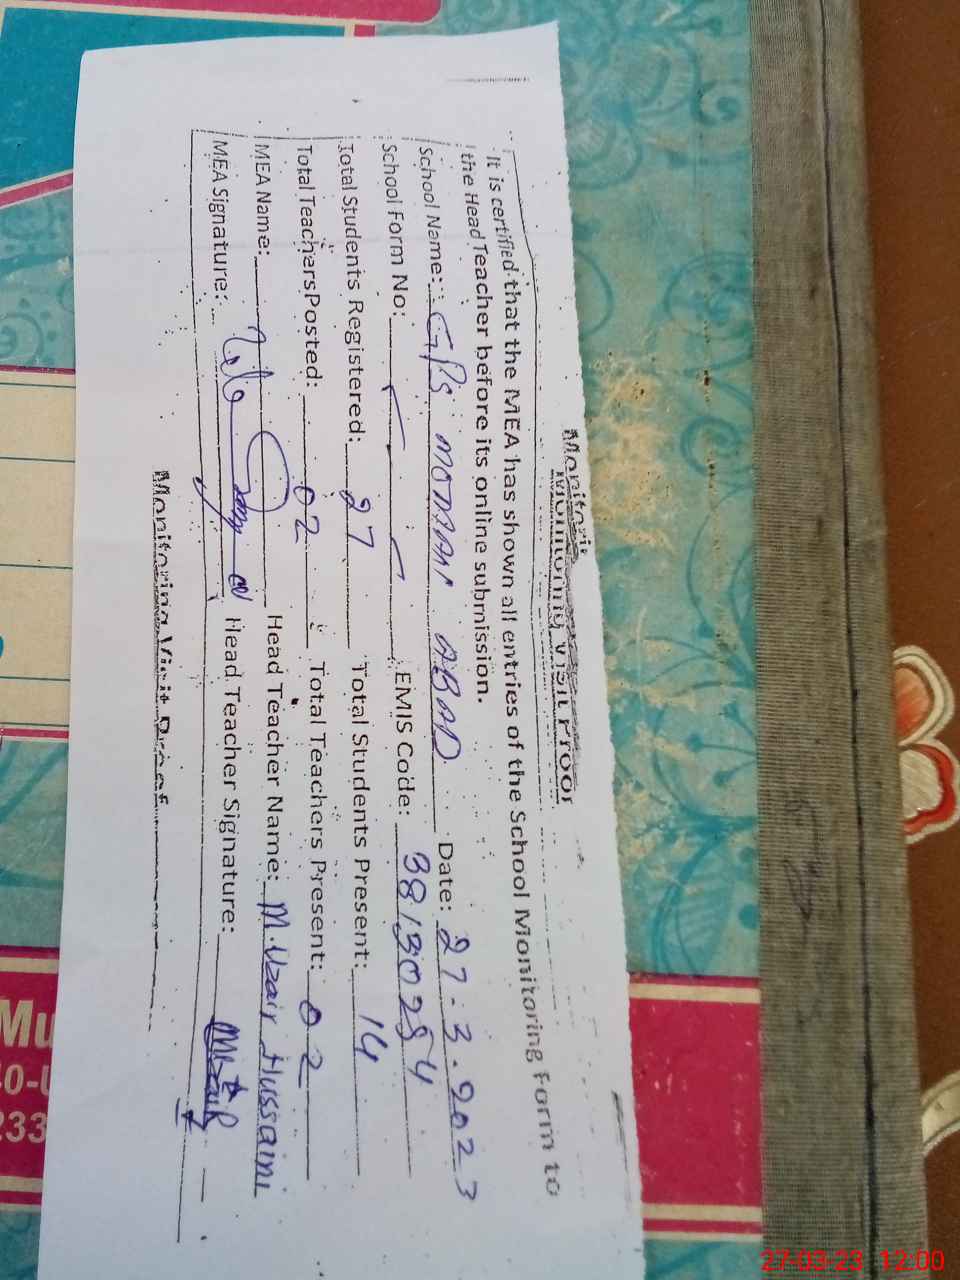 Monitoring Visit Proof
It is certified that the MEA has shown all entries of the School Monitoring Form to
the Head Teacher before its online submission.
School Name: GPS MODAAH ABAD Date: 27.3.2023
School Form No: EMIS Code: 38130254
Total Students Registered: 27 Total Students Present: 14
Total Teachers Posted: 02 Total Teachers Present: 02
MEA Name: Head Teacher Name: M. Uzair Hussaini
MEA Signature: Head Teacher Signature:
Monitoring Visit Proof
Mu
233
27-03-23 12:00